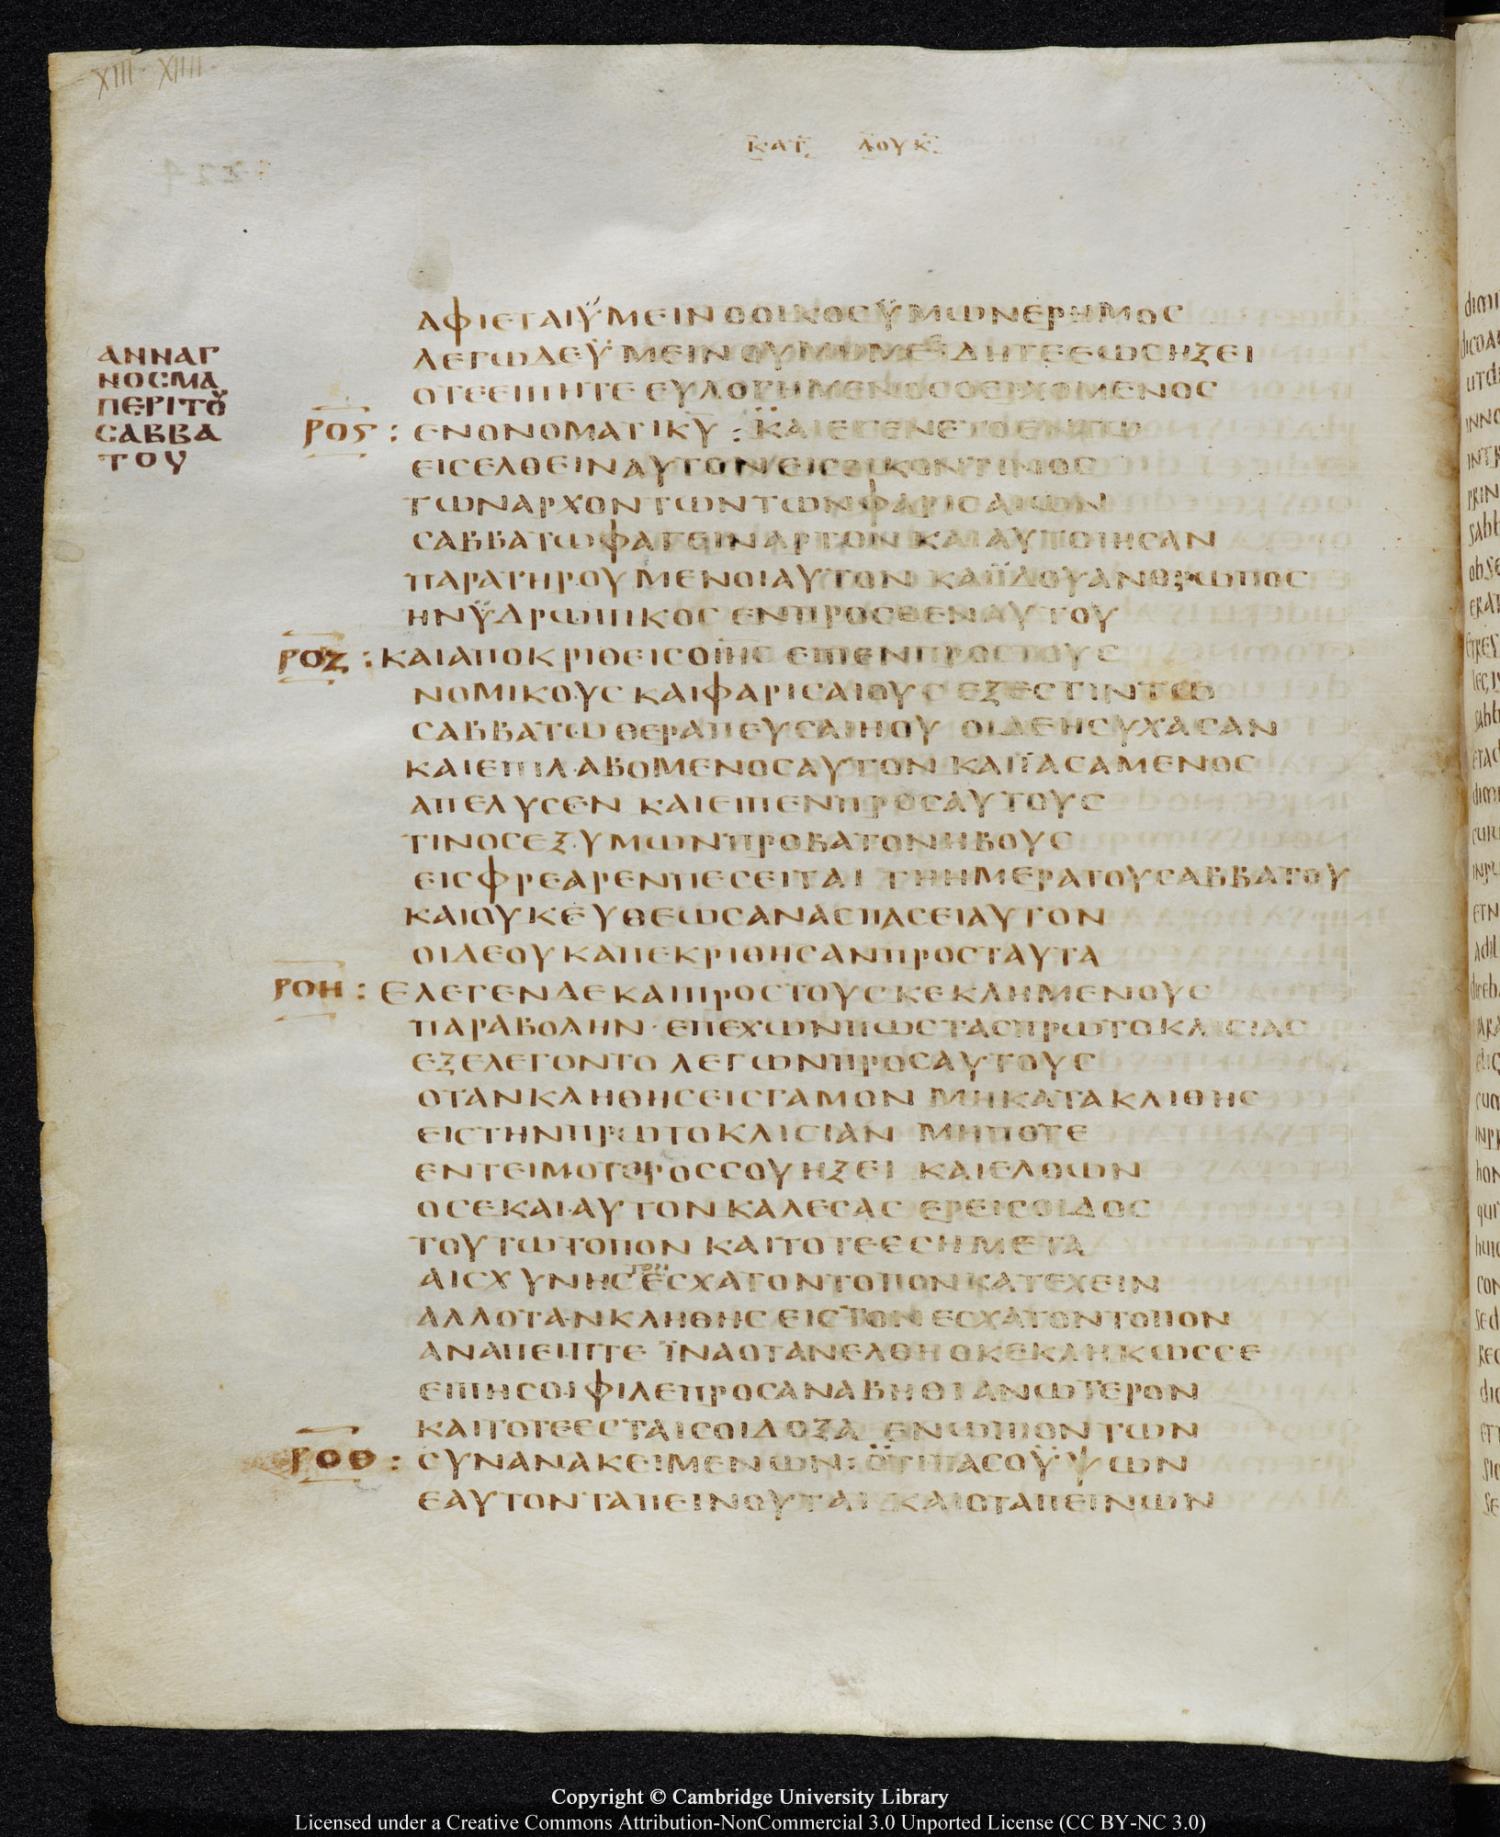 XIII · XIIII ·
ΚΑΤ ΛΟΥΚ
ΑΦΙΕΤΑΙΫΜΕΙΝ ΟΟΙΚΟΣΫΜΩΝΕΡΗΜΟΣ
ΛΕΓΩΔΕΫΜΕΙΝ ΟΥΜΗΜΕΙΔΗΤΕΕΩΣΗΞΕΙ
ΟΤΕΕΙΠΗΤΕ ΕΥΛΟΓΗΜΕΝΟΣΟΕΡΧΟΜΕΝΟΣ
ΑΝΝΑΓ
ΝΟΣΜΑ
ΠΕΡΙΤΟΥ
ΣΑΒΒΑ
ΤΟΥ
ΡΟϚ : ΕΝΟΝΟΜΑΤΙΚΥ : ΚΑΙΕΓΕΝΕΤΟΕΝΤΩ
ΕΙΣΕΛΘΕΙΝΑΥΤΟΝΕΙΣΟΙΚΟΝΤΙΝΟΣ
ΤΩΝΑΡΧΟΝΤΩΝΤΩΝΦΑΡΙΣΑΙΩΝ
ΣΑΒΒΑΤΩΦΑΓΕΙΝΑΡΤΟΝ ΚΑΙΑΥΤΟΙΗΣΑΝ
ΠΑΡΑΤΗΡΟΥΜΕΝΟΙΑΥΤΟΝ ΚΑΙΪΔΟΥΑΝΘΡΩΠΟΣ
ΗΝΫΔΡΩΠΙΚΟΣ ΕΝΠΡΟΣΘΕΝΑΥΤΟΥ
ΡΟΖ : ΚΑΙΑΠΟΚΡΙΘΕΙΣΟΙΗΣ ΕΙΠΕΝΠΡΟΣΤΟΥΣ
ΝΟΜΙΚΟΥΣ ΚΑΙΦΑΡΙΣΑΙΟΥΣ ΕΞΕΣΤΙΝΤΩ
ΣΑΒΒΑΤΩ ΘΕΡΑΠΕΥΣΑΙΗΟΥ ΟΙΔΕΗΣΥΧΑΣΑΝ
ΚΑΙΕΠΙΛΑΒΟΜΕΝΟΣΑΥΤΟΝ ΚΑΙΪΑΣΑΜΕΝΟΣ
ΑΠΕΛΥΣΕΝ ΚΑΙΕΙΠΕΝΠΡΟΣΑΥΤΟΥΣ
ΤΙΝΟΣΕΞΥΜΩΝΠΡΟΒΑΤΟΝΗΒΟΥΣ
ΕΙΣΦΡΕΑΡΕΝΠΕΣΕΙΤΑΙ ΤΗΗΜΕΡΑΤΟΥΣΑΒΒΑΤΟΥ
ΚΑΙΟΥΚΕΥΘΕΩΣΑΝΑΣΠΑΣΕΙΑΥΤΟΝ
ΟΙΔΕΟΥΚΑΠΕΚΡΙΘΗΣΑΝΠΡΟΣΤΑΥΤΑ
ΡΟΗ : ΕΛΕΓΕΝΔΕΚΑΙΠΡΟΣΤΟΥΣΚΕΚΛΗΜΕΝΟΥΣ
ΠΑΡΑΒΟΛΗΝ · ΕΠΕΧΩΝΠΩΣΤΑΣΠΡΩΤΟΚΛΙΣΙΑΣ
ΕΞΕΛΕΓΟΝΤΟ ΛΕΓΩΝΠΡΟΣΑΥΤΟΥΣ
ΟΤΑΝΚΛΗΘΗΣΕΙΣΓΑΜΟΝ ΜΗΚΑΤΑΚΛΙΘΗΣ
ΕΙΣΤΗΝΠΡΩΤΟΚΛΙΣΙΑΝ ΜΗΠΟΤΕ
ΕΝΤΕΙΜΟΤΕΡΟΣΣΟΥΗΞΕΙ ΚΑΙΕΛΘΩΝ
ΟΣΕΚΑΙΑΥΤΟΝΚΑΛΕΣΑΣ ΕΡΕΙΣΟΙΔΟΣ
ΤΟΥΤΩΤΟΠΟΝ ΚΑΙΤΟΤΕΕΣΗΜΕΤΑ
ΑΙΣΧΥΝΗΣ ΤΟΝ ΕΣΧΑΤΟΝΤΟΠΟΝΚΑΤΕΧΕΙΝ
ΑΛΛΟΤΑΝΚΛΗΘΗΣ ΕΙΣΤΟΝ ΕΣΧΑΤΟΝΤΟΠΟΝ
ΑΝΑΠΕΙΠΤΕ ΪΝΑΟΤΑΝΕΛΘΗΟΚΕΚΛΗΚΩΣΣΕ
ΕΙΠΗΣΟΙΦΙΛΕΠΡΟΣΑΝΑΒΗΘΙΑΝΩΤΕΡΟΝ
ΚΑΙΤΟΤΕΕΣΤΑΙΣΟΙΔΟΞΑ ΕΝΩΠΙΟΝΤΩΝ
ΡΟΘ : ΣΥΝΑΝΑΚΕΙΜΕΝΩΝ : ΟΤΙΠΑΣΟΫΨΩΝ
ΕΑΥΤΟΝΤΑΠΕΙΝΟΥΤΑΙ ΚΑΙΟΤΑΠΕΙΝΩΝ
Copyright © Cambridge University Library
Licensed under a Creative Commons Attribution-NonCommercial 3.0 Unported License (CC BY-NC 3.0)